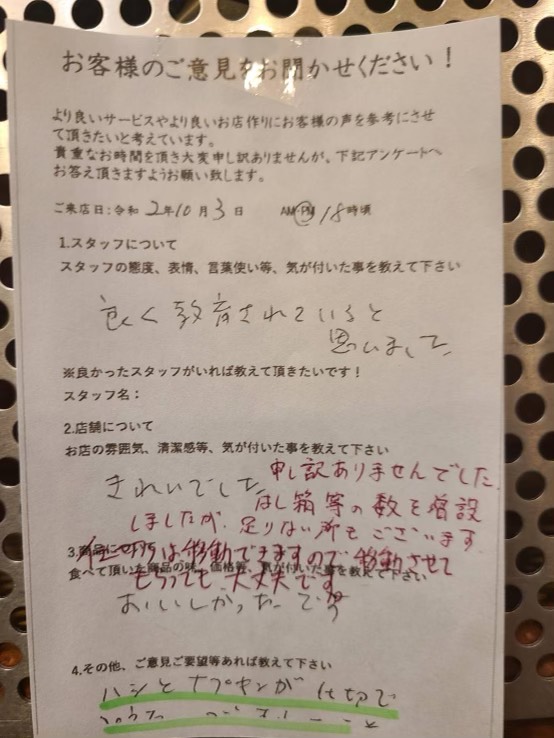 お客様のご意見をお聞かせください!
より良いサービスやより良いお店作りにお客様の声を参考にさせ
て頂きたいと考えています。
貴重なお時間を頂き大変申し訳ありませんが、下記アンケートへ
お答え頂きますようお願い致します。
ご来店日:令和 2年10月3日 AM・PM 18時頃
1.スタッフについて
スタッフの態度、表情、言葉使い等、気が付いた事を教えて下さい
良く教育されていると
思いました
※良かったスタッフがいれば教えて頂きたいです!
スタッフ名:
2.店舗について
お店の雰囲気、清潔感等、気が付いた事を教えて下さい
きれいでした
申し訳ありませんでした。
はし箱等の数を増設
しましたが、足りない所もございます
は移動できますので移動させて
もらっても大丈夫です
3.商品に
食べて頂いた商品の味、価格等、気が付いた事を教えて下さい
おいしかったです
4.その他、ご意見ご要望等あれば教えて下さい
ハシとナプキンが